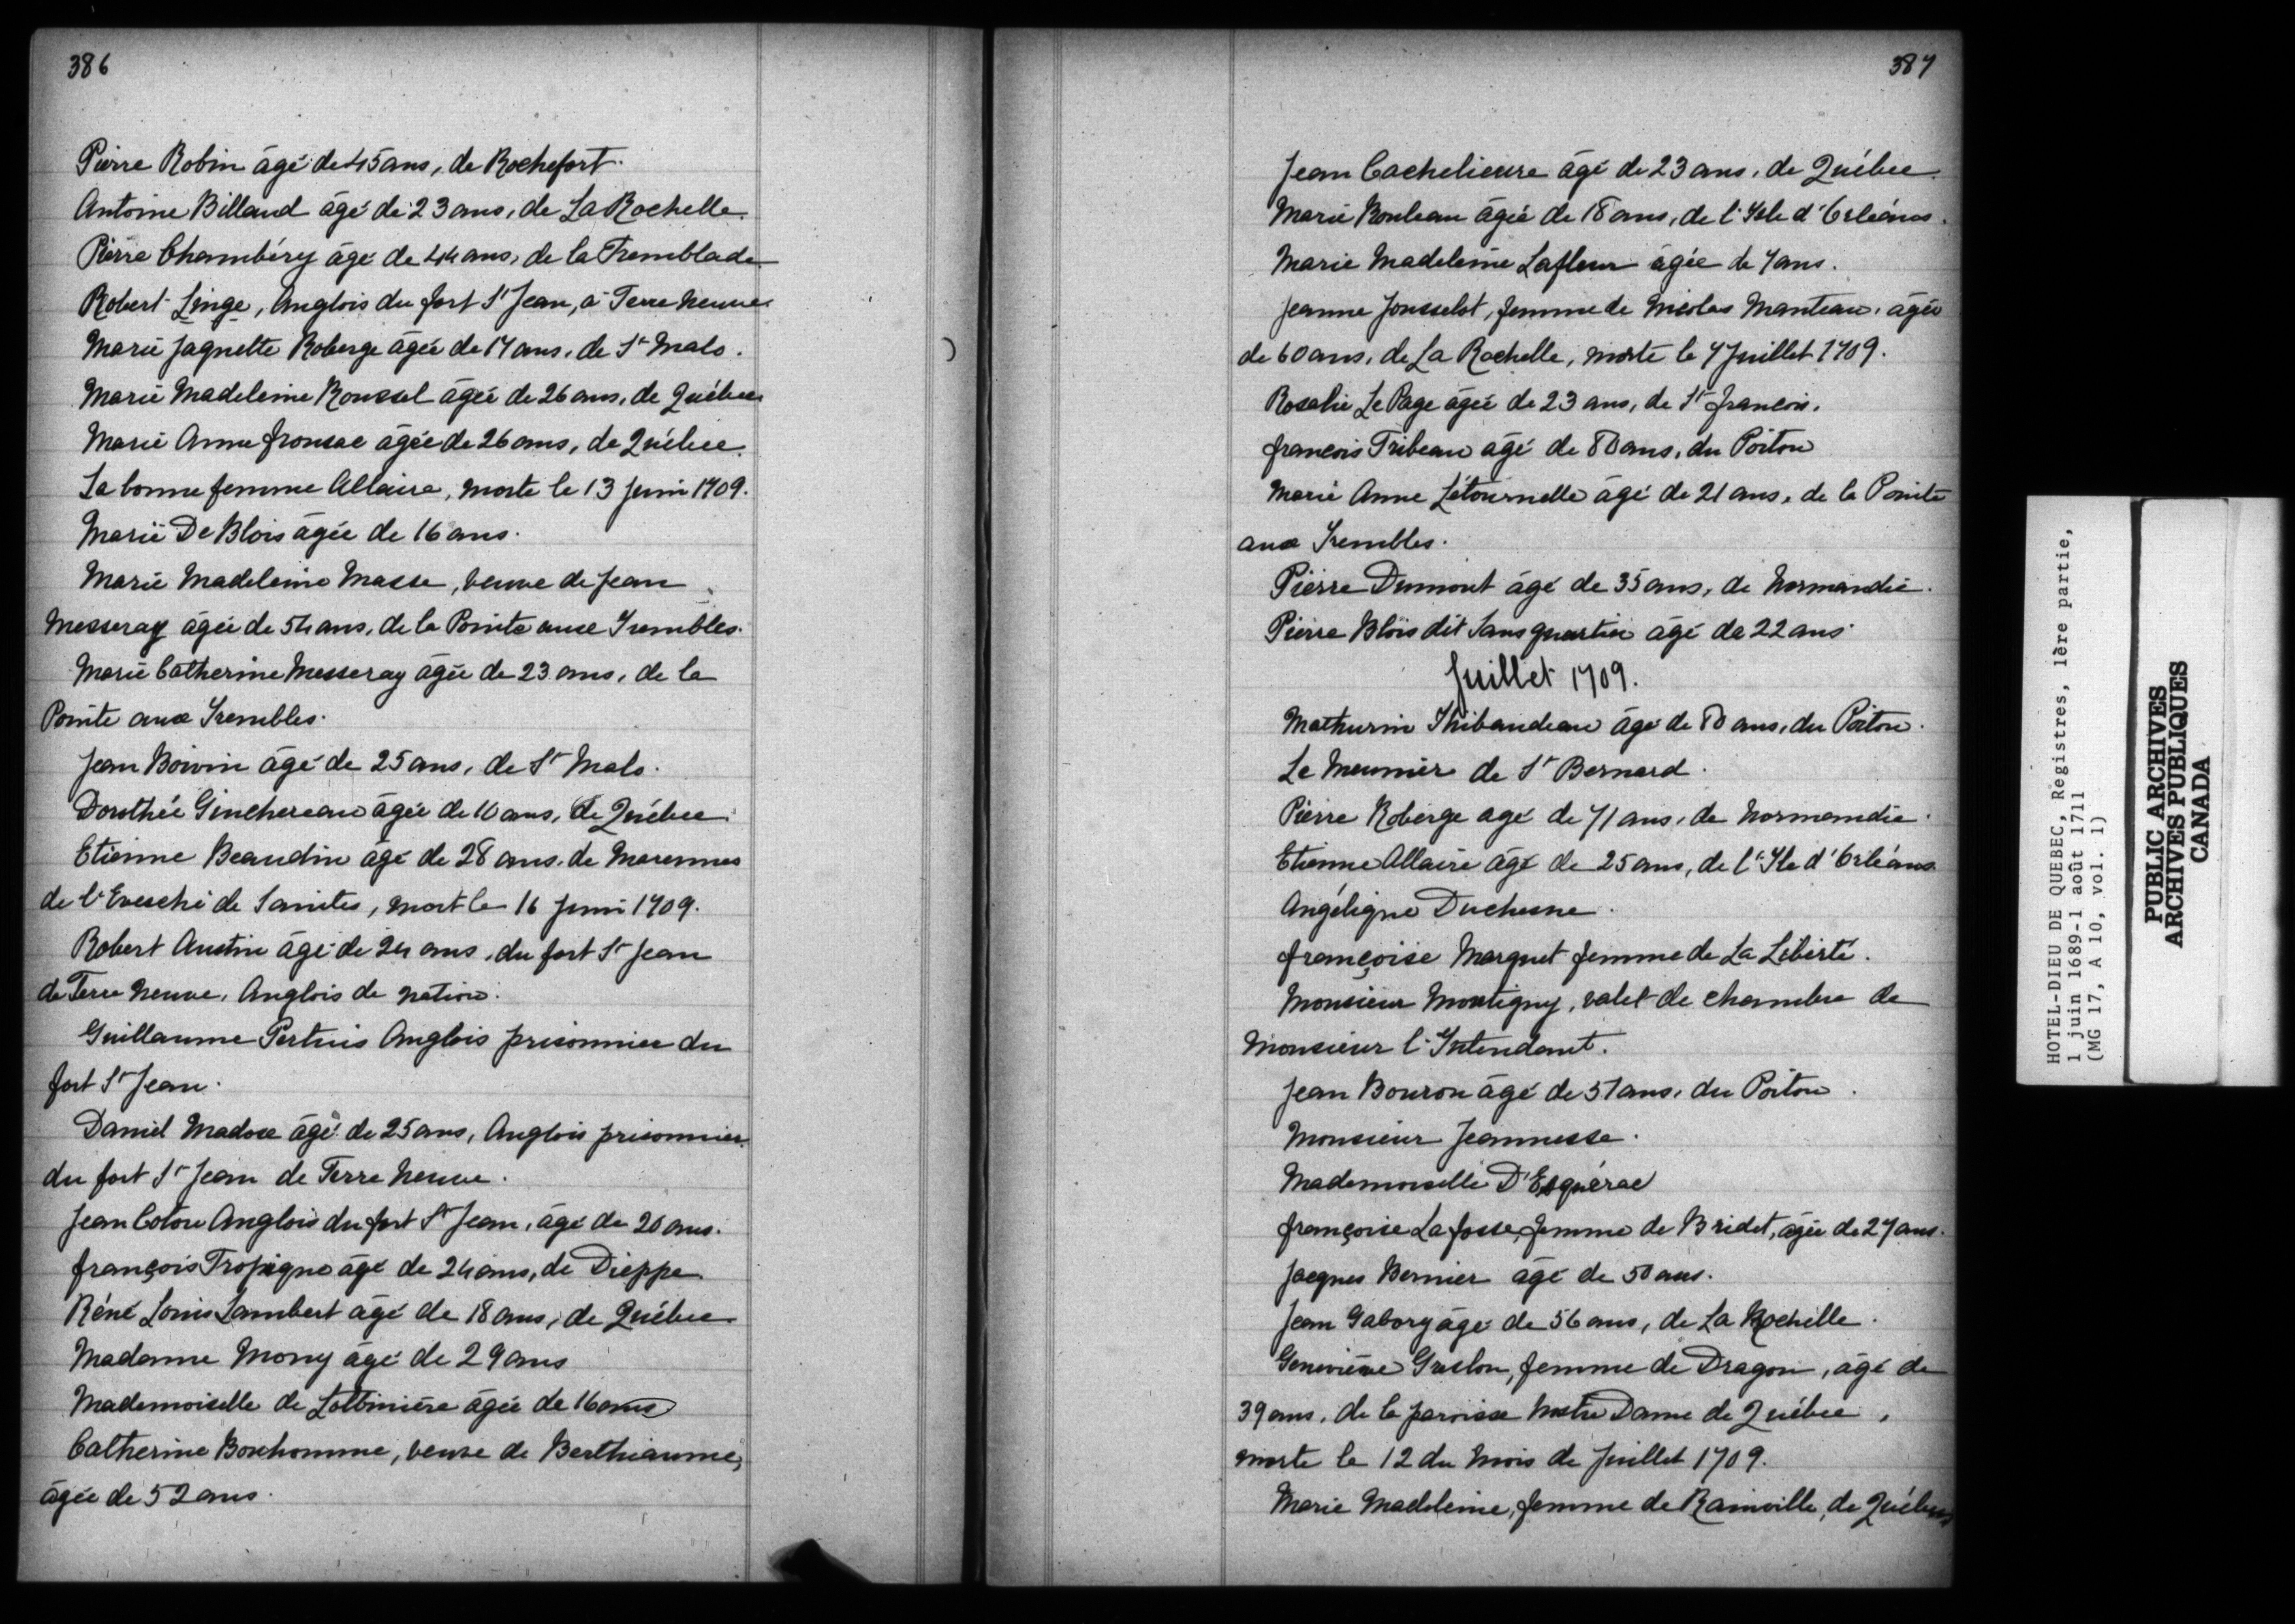 386
Pierre Robin âgé de 45 ans, de Rochefort.
Antoine Billaud âgé de 23 ans, de La Rochelle.
Pierre Chambéry âgé de 44 ans, de la Tremblade
Robert Linge, Anglois du fort St Jean, à Terre neuve
Marie Jaquette Roberge âgée de 17 ans, de St Malo.
Marie Madeleine Roussel âgée de 26 ans, de Québec
Marie Anne fronsac âgée de 26 ans, de Québec.
La bonne femme Allaire, morte le 13 Juin 1709.
Marie De Blois âgée de 16 ans.
Marie Madeleine Masse, veuve de Jean
Messeray âgée de 54 ans, de la Pointe aux Trembles.
Marie Catherine Messeray âgée de 23 ans, de la
Pointe aux Trembles.
Jean Boivin âgé de 25 ans, de St Malo.
Dorothée Ginchereau âgée de 10 ans, de Québec.
Etienne Beaudin âgé de 28 ans, de Marennes
de l'Evesché de Saintes, mort le 16 Juin 1709.
Robert Austin âgé de 24 ans, du fort St Jean
de Terre neuve, Anglois de nation.
Guillaume Pertuis Anglois prisonnier du
fort St Jean.
Daniel Madox âgé de 25 ans, Anglois prisonnier
du fort St Jean de Terre Neuve.
Jean Coton Anglois du fort St Jean, âgé de 20 ans.
françois Tropigne âgé de 24 ans, de Dieppe.
Réné Louis Lambert âgé de 18 ans, de Québec
Madame Mony âgé de 29 ans
Mademoiselle de Lotbinière âgée de 16 ans
Catherine Bonhomme, veuve de Berthiaume,
âgée de 52 ans.
387
Jean Cachelieure âgé de 23 ans, de Québec.
Marie Rouleau âgée de 18 ans, de l'Isle d'Orléans.
Marie Madeleine Lafleur âgée de 7 ans.
Jeanne Jousselot, femme de Nicolas Manteau, âgée
de 60 ans, de La Rochelle, morte le 7 Juillet 1709.
Rosalie Le Page âgée de 23 ans, de St francois.
francois Tribeau âgé de 80 ans, du Poitou
Marie Anne Létournelle âgé de 21 ans, de la Pointe
aux Trembles.
Pierre Dumont âgé de 35 ans, de Normandie.
Pierre Blois dit Sansquartier âgé de 22 ans.
Juillet 1709.
Mathurin Thibaudeau âgé de 80 ans, du Poitou.
Le Meunier de St Bernard.
Pierre Roberge agé de 71 ans, de Normandie.
Etienne Allaire âgé de 25 ans, de l'Ile d'Orléans
Angélique Duchesne.
françoise Marquet femme de La Liberté.
Monsieur Montigny, valet de chambre de
Monsieur l'Intendant.
Jean Bouron âgé de 57 ans, du Poitou.
Monsieur Jeannesse.
Mademoiselle D'Esquérac
françoise La fosse, femme de Bridet, âgée de 27 ans.
Jacques Bernier âgé de 50 ans.
Jean Gabory âgé de 56 ans, de La Rochelle.
Geneviève Greslon, femme de Dragon, âgé de
39 ans, de la paroisse Nostre Dame de Québec,
morte le 12 du mois de Juillet 1709.
Marie Madeleine, femme de Rainville, de Québec
HOTEL-DIEU DE QUEBEC, Registres, 1ère partie,
1 juin 1689-1 août 1711
(MG 17, A 10, vol. 1)
PUBLIC ARCHIVES
ARCHIVES PUBLIQUES
CANADA